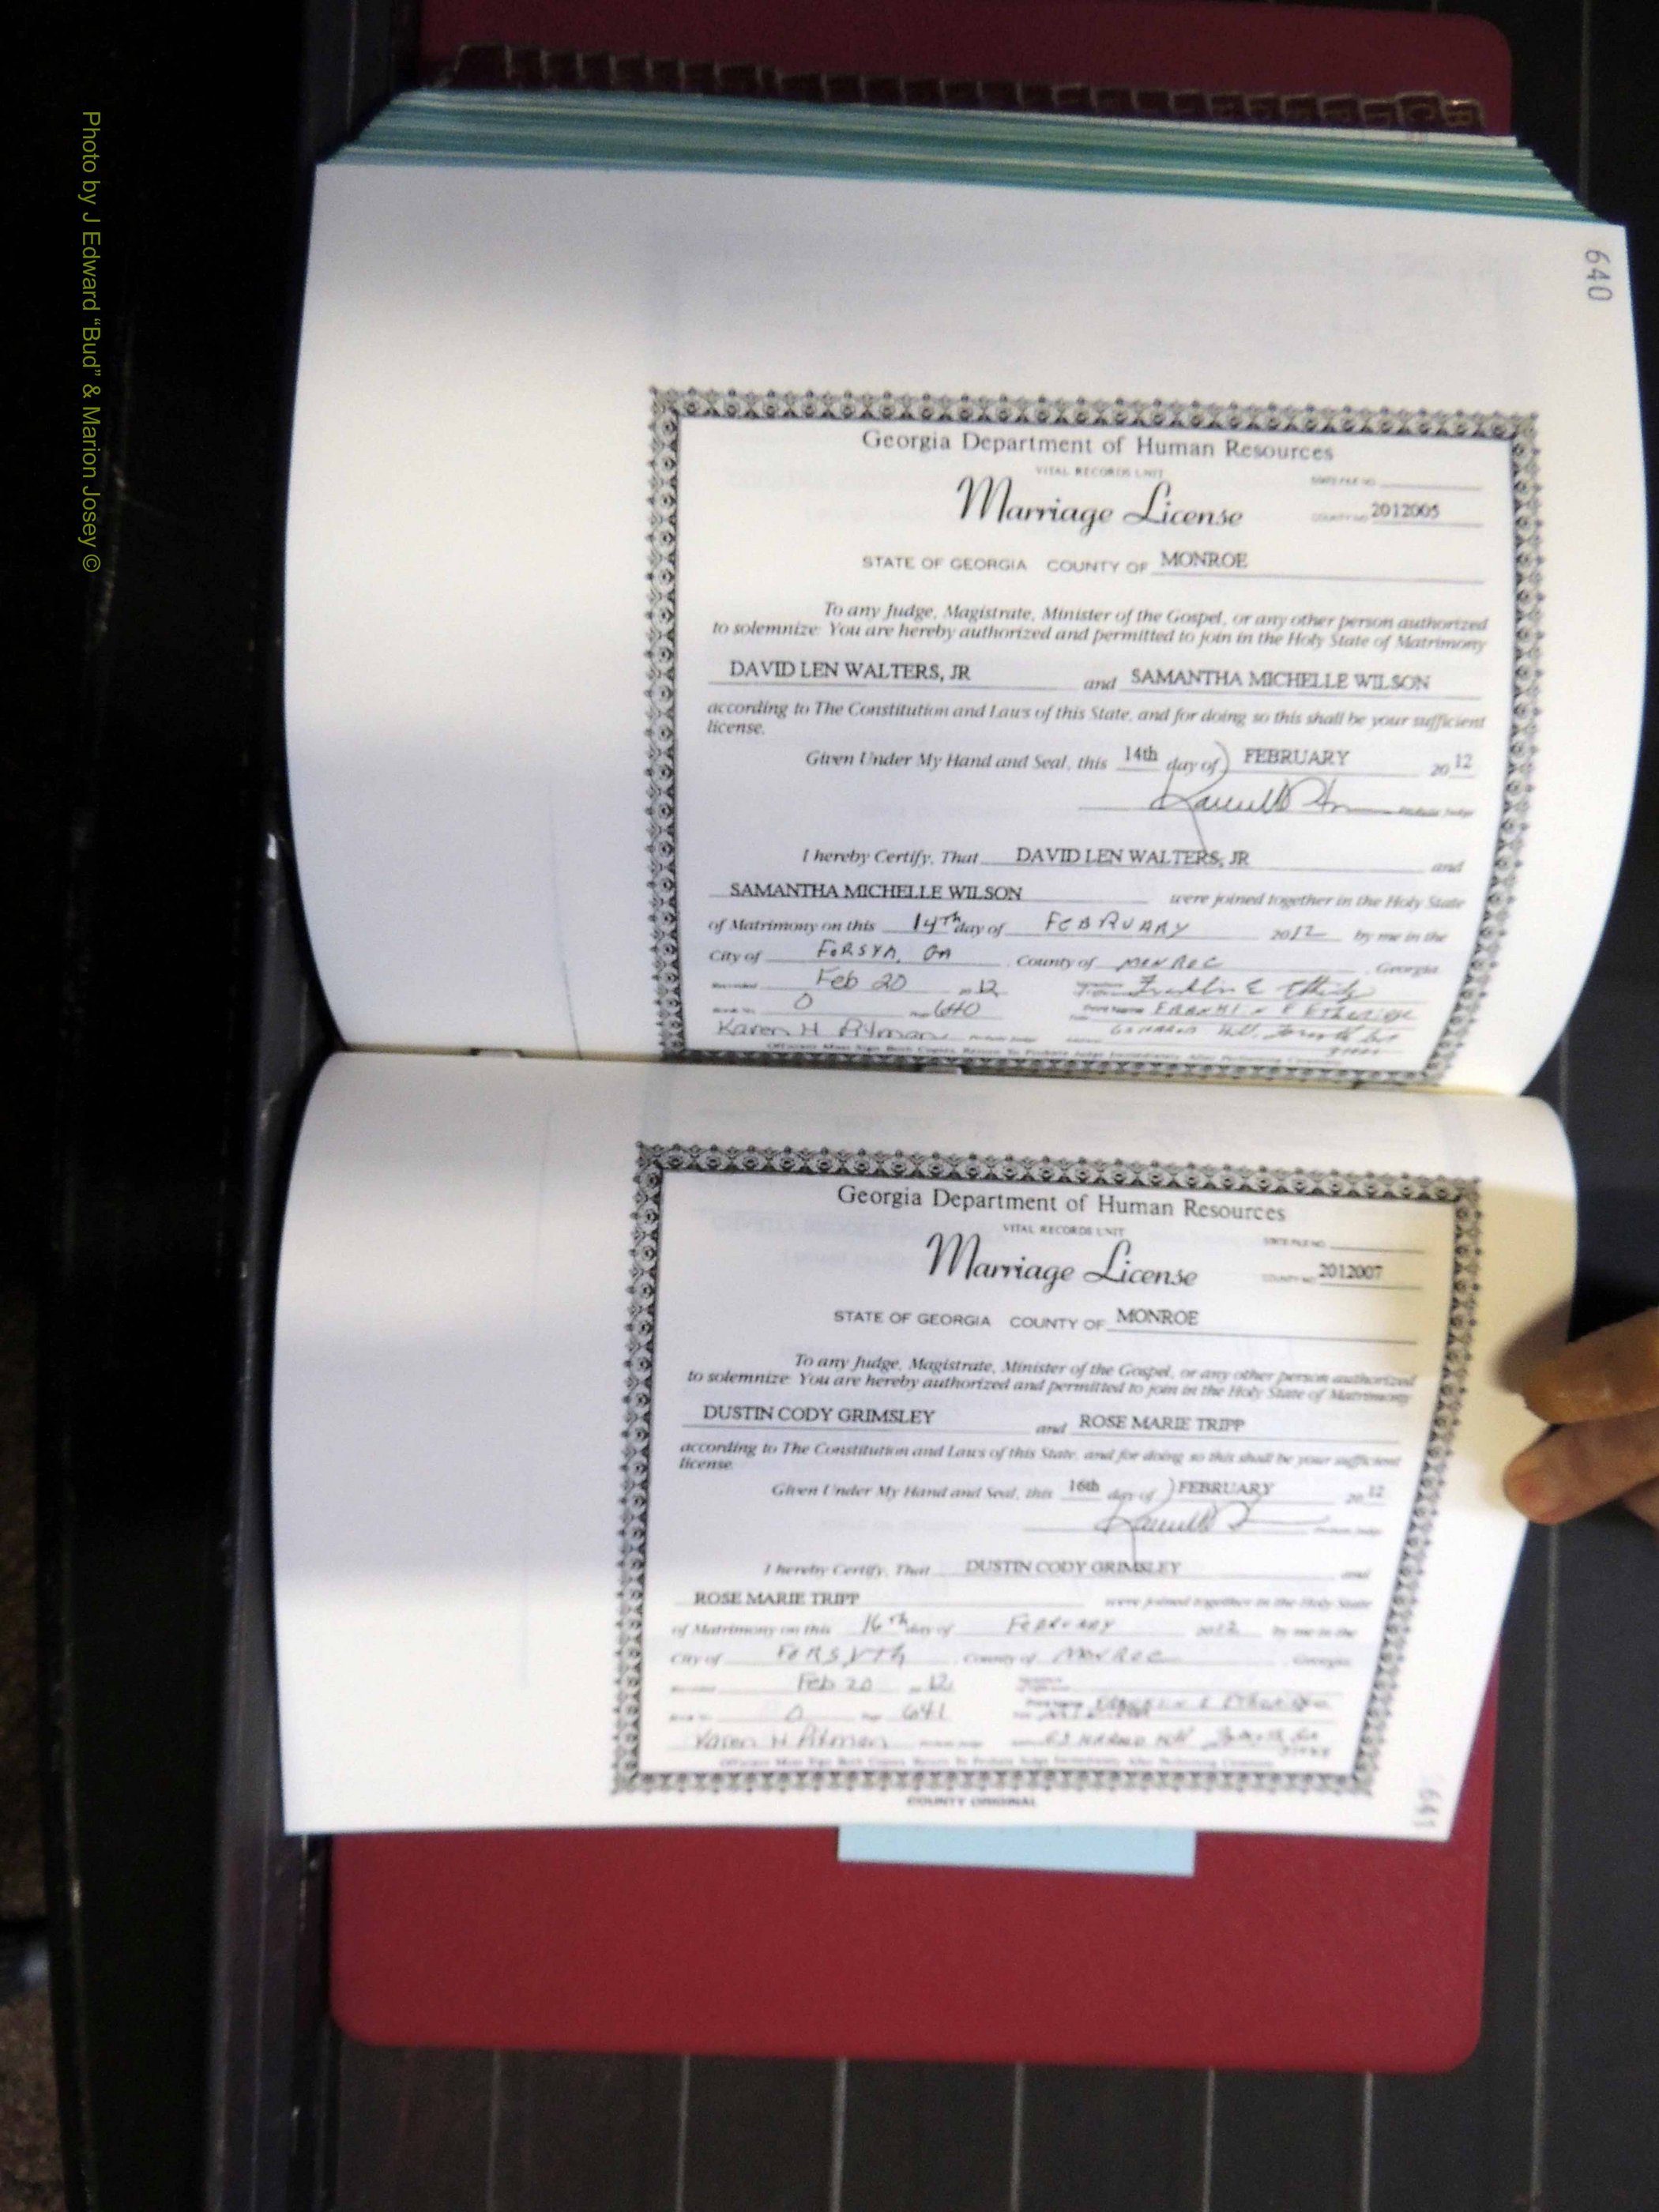 Photo by J Edward "Bud" & Marion Josey ©
640
Georgia Department of Human Resources
VITAL RECORDS UNIT
STATE FILE NO.
Marriage License
COUNTY NO. 2012005
STATE OF GEORGIA COUNTY OF MONROE
To any Judge, Magistrate, Minister of the Gospel, or any other person authorized
to solemnize: You are hereby authorized and permitted to join in the Holy State of Matrimony
DAVID LEN WALTERS, JR and SAMANTHA MICHELLE WILSON
according to The Constitution and Laws of this State, and for doing so this shall be your sufficient
license.
Given Under My Hand and Seal, this 14th day of FEBRUARY 20 12
Probate Judge
I hereby Certify, That DAVID LEN WALTERS, JR and
SAMANTHA MICHELLE WILSON were joined together in the Holy State
of Matrimony on this 14th day of FEBRUARY 2012 by me in the
City of FORSYH, GA, County of MONROE, Georgia.
Feb 20 12
0 640 Print Name FRANKLIN E ETHERIDGE
Karen H Pitman Probate Judge
Officiant Must Sign Both Copies. Return To Probate Judge Immediately After Performing Ceremony.
Georgia Department of Human Resources
VITAL RECORDS UNIT
STATE FILE NO.
Marriage License
COUNTY NO. 2012007
STATE OF GEORGIA COUNTY OF MONROE
To any Judge, Magistrate, Minister of the Gospel, or any other person authorized
to solemnize: You are hereby authorized and permitted to join in the Holy State of Matrimony
DUSTIN CODY GRIMSLEY and ROSE MARIE TRIPP
according to The Constitution and Laws of this State, and for doing so this shall be your sufficient
license.
Given Under My Hand and Seal, this 16th day of FEBRUARY 20 12
Probate Judge
I hereby Certify, That DUSTIN CODY GRIMSLEY and
ROSE MARIE TRIPP were joined together in the Holy State
of Matrimony on this 16th day of February 2012 by me in the
City of FORSYTH, County of MONROE, Georgia.
Feb 20 12
0 Page 641 Print Name FRANKLIN E ETHERIDGE
Karen H Pitman Probate Judge
Officiant Must Sign Both Copies. Return To Probate Judge Immediately After Performing Ceremony.
COUNTY ORIGINAL
641